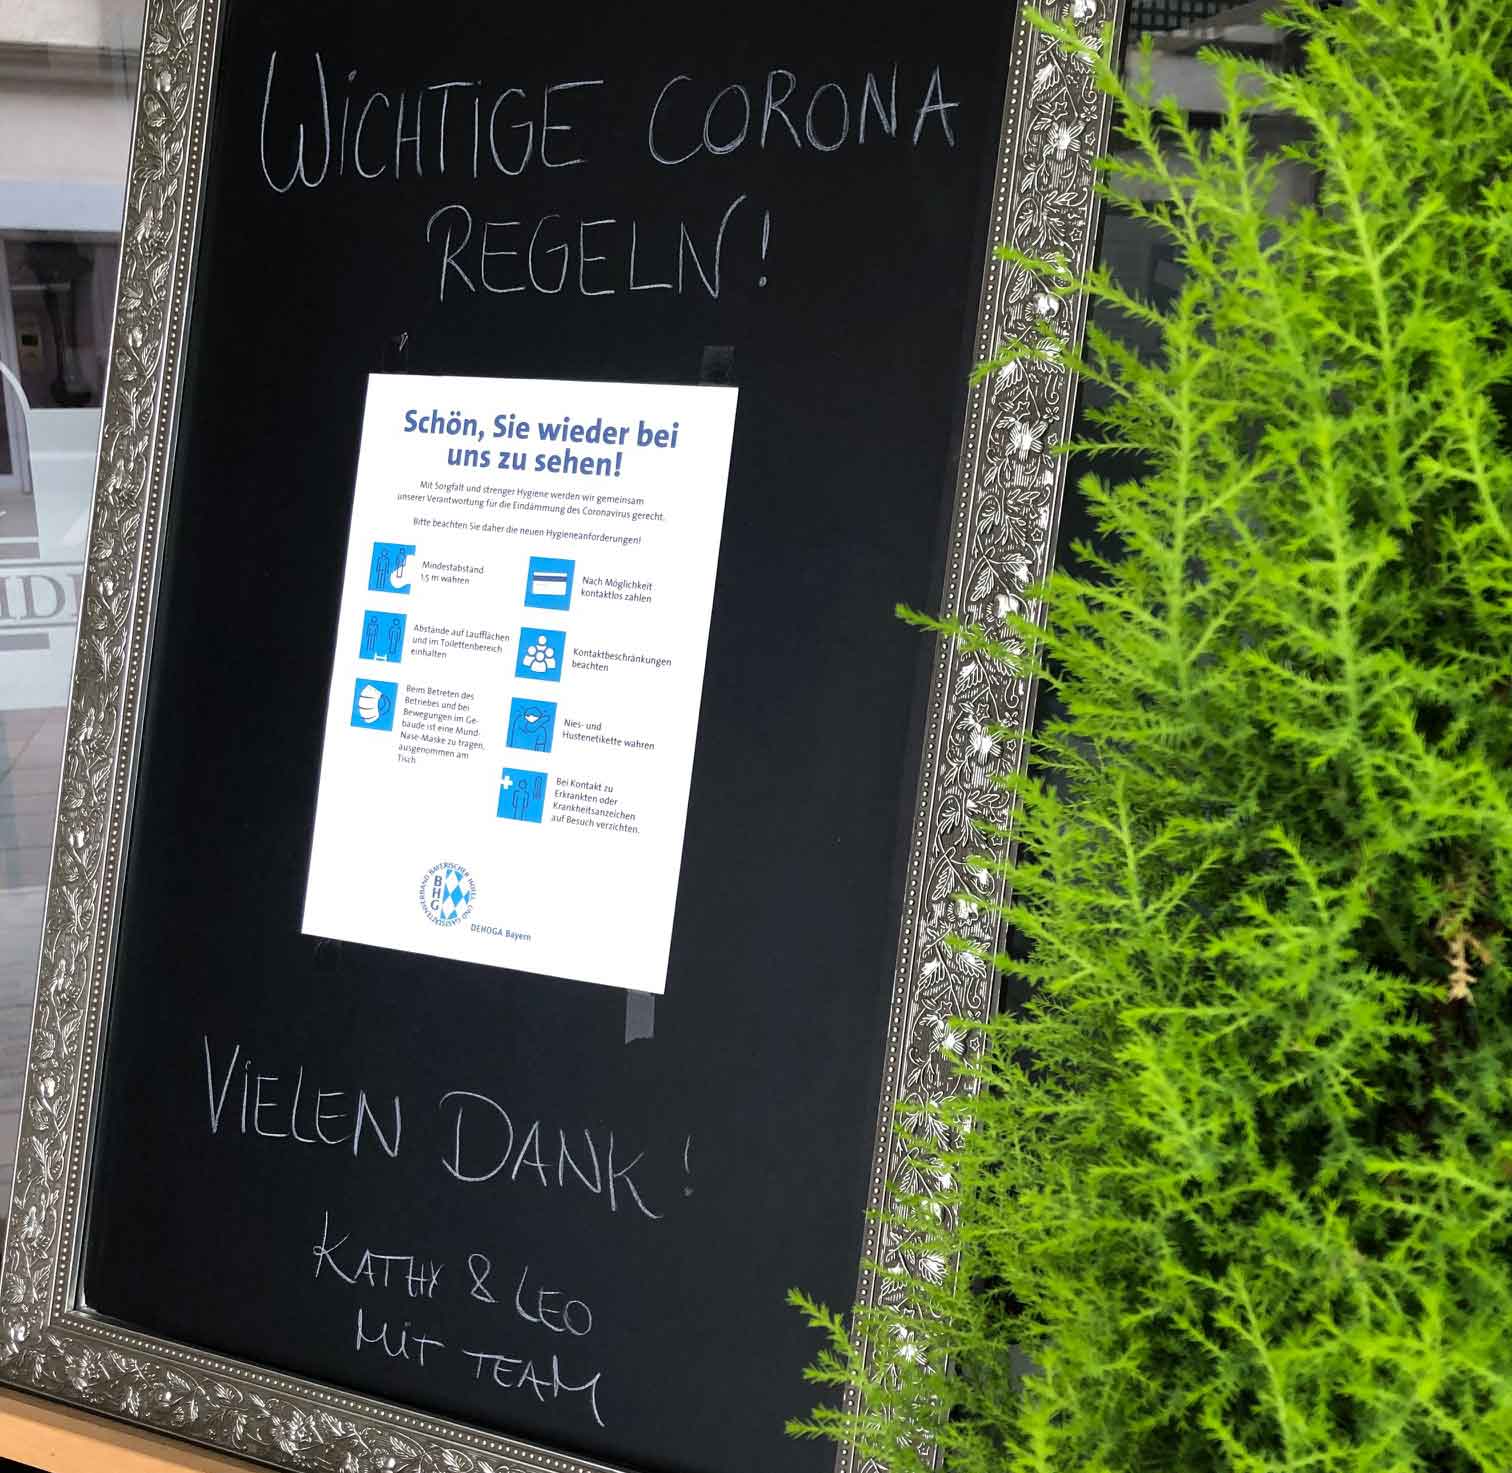 WICHTIGE CORONA
REGELN!
Schön, Sie wieder bei
uns zu sehen!
Mit Sorgfalt und strenger Hygiene werden wir gemeinsam
unserer Verantwortung für die Eindämmung des Coronavirus gerecht.
Bitte beachten Sie daher die neuen Hygieneanforderungen!
Mindestabstand
1,5 m wahren
Abstände auf Laufflächen
und im Toilettenbereich
einhalten
Beim Betreten des
Betriebes und bei
Bewegungen im Ge-
bäude ist eine Mund-
Nase-Maske zu tragen,
ausgenommen am
Tisch
Nach Möglichkeit
kontaktlos zahlen
Kontaktbeschränkungen
beachten
Nies- und
Hustenetikette wahren
Bei Kontakt zu
Erkrankten oder
Krankheitsanzeichen
auf Besuch verzichten.
BAYERISCHER HOTEL- UND GASTSTÄTTENVERBAND
BHG
DEHOGA Bayern
VIELEN DANK!
KATHY & LEO
MIT TEAM